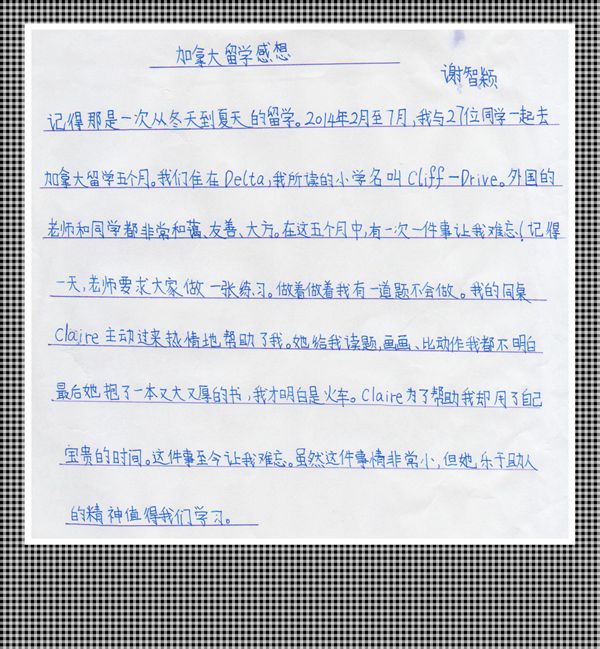 加拿大留学感想
谢智颖
记得那是一次从冬天到夏天的留学。2014年2月至7月,我与27位同学一起去
加拿大留学五个月。我们住在Delta,我所读的小学名叫Cliff-Drive。外国的
老师和同学都非常和蔼、友善、大方。在这五个月中,有一次一件事让我难忘!记得
一天,老师要求大家做一张练习。做着做着我有一道题不会做。我的同桌
Claire主动过来热情地帮助了我。她给我读题,画画、比动作我都不明白
最后她把了一本又大又厚的书,我才明白是火车。Claire为了帮助我却用了自己
宝贵的时间。这件事至今让我难忘。虽然这件事情非常小,但她乐于助人
的精神值得我们学习。